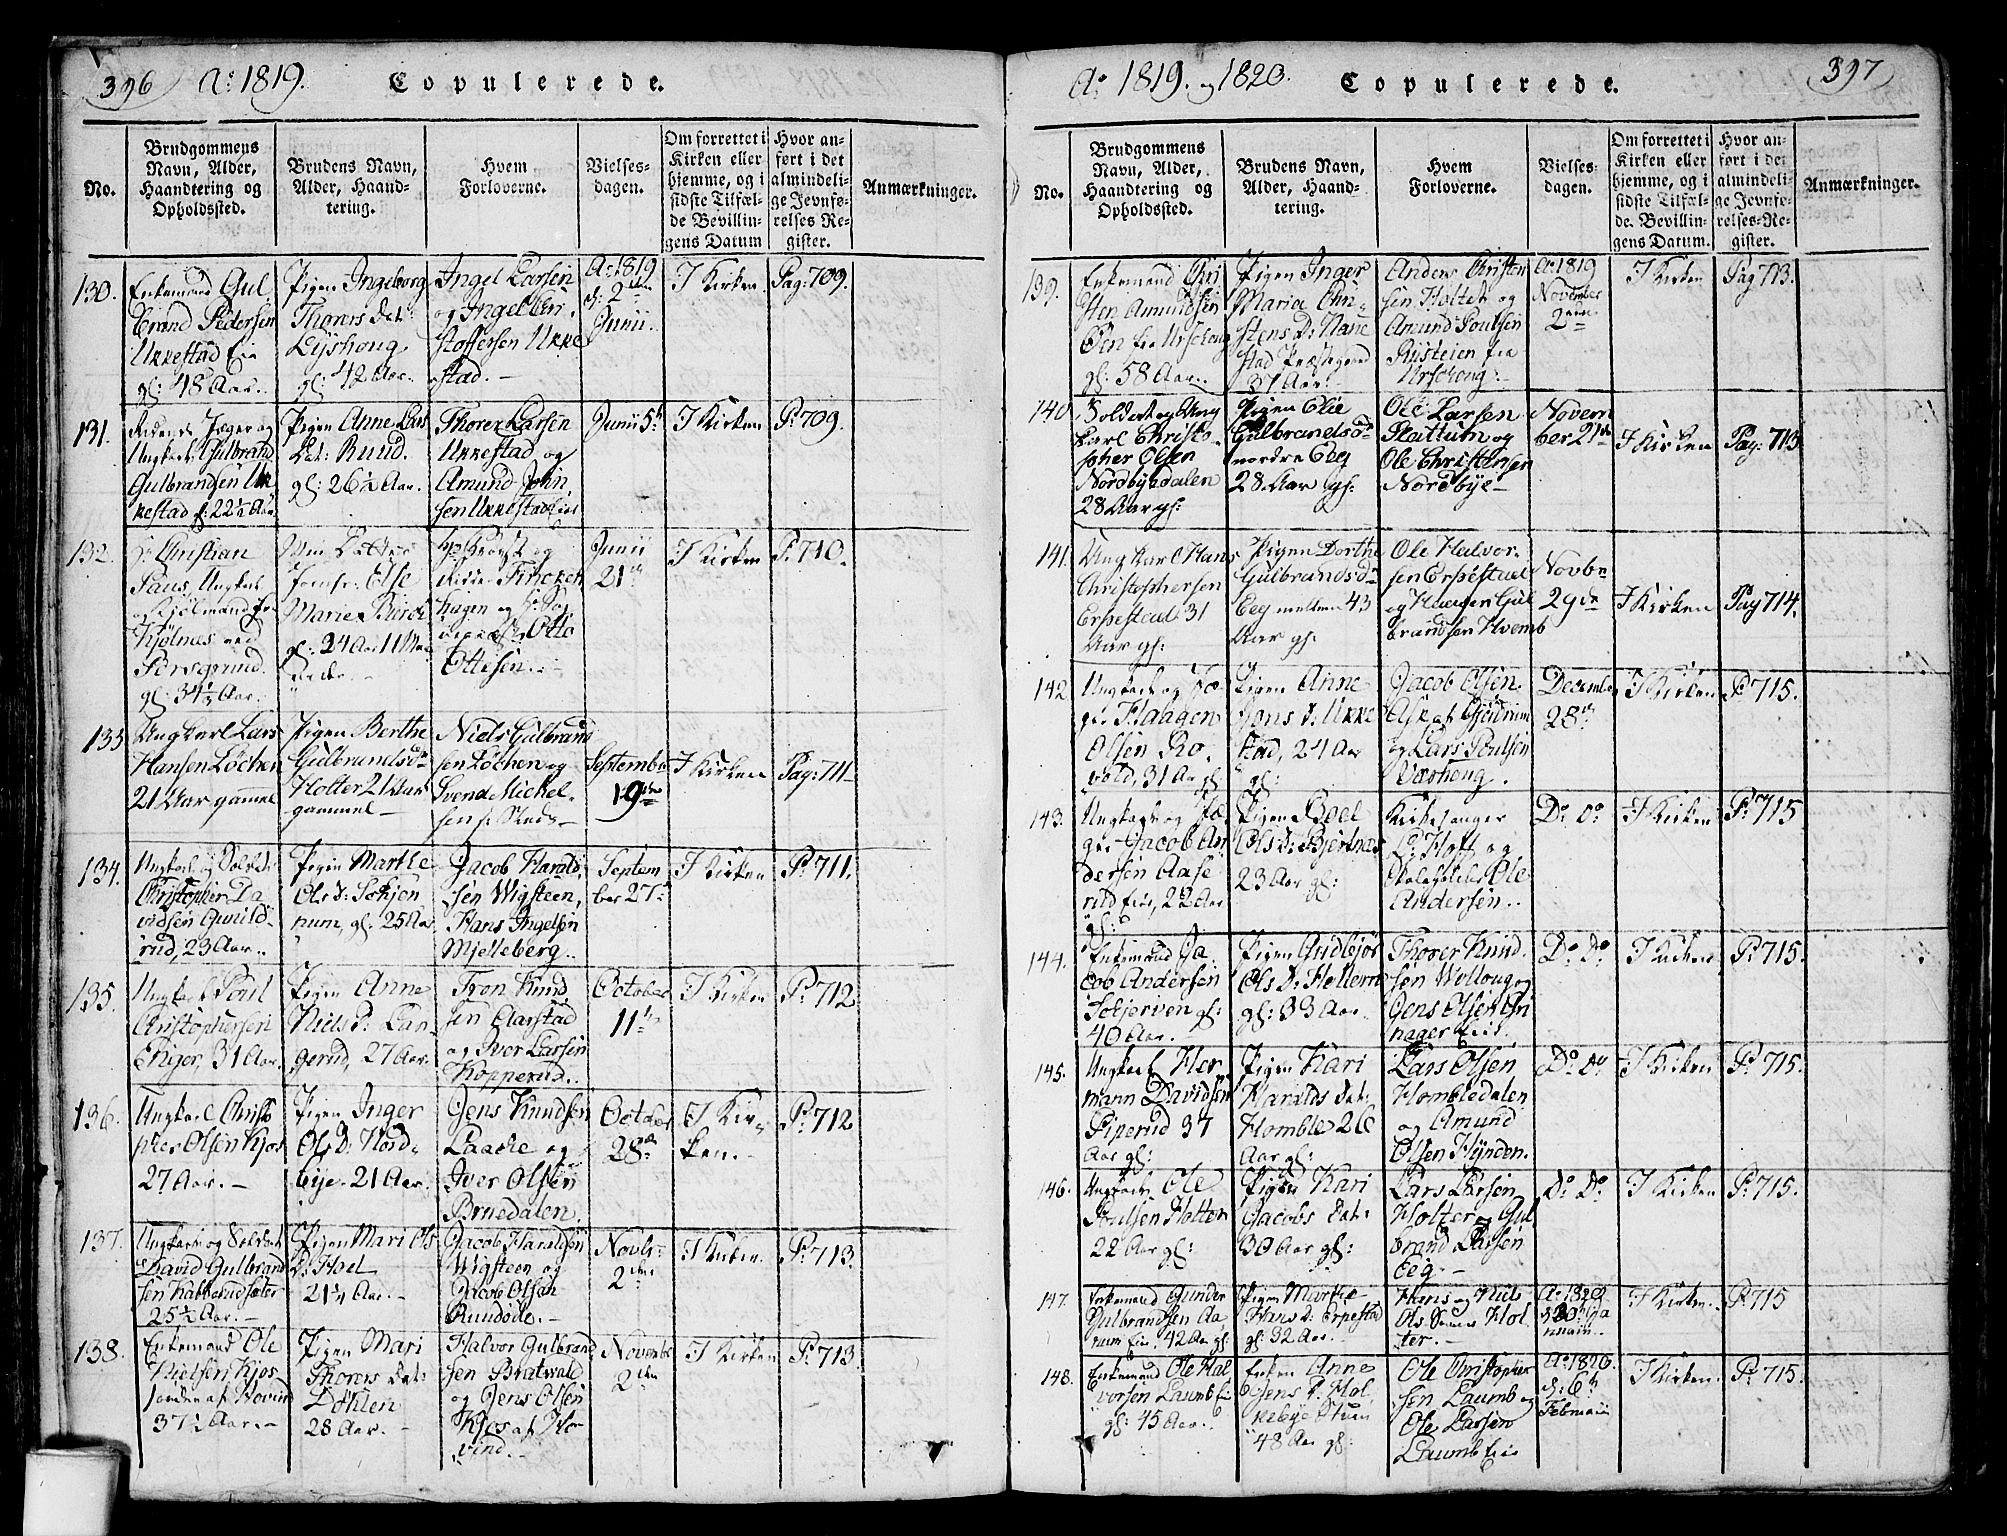 396 Aº 1819. Copulerede.
No.
Brudgommens
Navn, Alder,
Haandtering og
Opholdssted.
Brudens Navn,
Alder, Haand-
tering.
Hvem
Forloverne.
Vielses-
dagen.
Om forrettet i
Kirken eller
hjemme, og i
sidste Tilfæl-
de Bevillin-
gens Datum
Hvor an-
ført i det
almindeli-
ge Jevnfø-
relses Re-
gister.
Anmærkninger.
130.
Enkemand Gul
brand Pedersen
Ukkestad Eie
gl: 48 Aar.
Pigen Ingeborg
Thorers Dat:
Lyshoug
gl: 42 Aar.
Ingel Larsen
og Ingel Chri
stoffersen Ukke
stad.
Aº 1819
d: 2den
Junii.
I Kirken
Pag: 709.
131.
Ridende Jæger og
Ungkarl Gulbrand
Gulbrandsen Uk
kestad gl: 22½ Aar
Pigen Anne Lars
Dat: Ruud.
gl: 26½ Aar.
Thorer Larsen
Ukkestad og
Amund John
sen Ukkestadeiet
Junii 5te
I Kirken
P: 709.
132.
Hr Christian
Paus, Ungkarl
og
Kjølnæs ved
Porsgrund.
gl: 34½ Aar.
Min Datter
Jomfr: Else
Marie
gl: 24 Aar 11 Maa
neder.
og
Fincken
hagen og
Otto
Ottesen.
Junii
21de
I Kirken
P: 710.
133
Ungkarl Lars
Hansen Løchen
21 Aar gammel
Pigen Berthe
Gulbrandsdr
Holter 21 Aar
gammel
Niels Gulbrand
sen Løchen og
Svend Michel-
sen
Septembr
19de
I Kirken
Pag: 711
134.
Ungkarl og Soldat
Christopher Da
vidsen
rud, 23 Aar.
Pigen Marthe
Ols D: Schjon
num, gl: 25 Aar
Jacob Harald
sen Wigsteen,
Hans Ingelsen
Mjelleberg.
Septem
ber 27de
I Kirken
P: 711.
135.
Ungkarl Poul
Christophersen
Enger, 31 Aar.
Pigen Anne
Niels D: Lan
gerud, 27 Aar.
Tron Knud
sen Aarstad
og Iver Larsen
Kopperud.
October
11te
I Kirken
P: 712
136.
Ungkarl Christo
pher Olsen Kjos
27 Aar.
Pigen Inger
Ols D: Nord-
bye 21 Aar.
Jens Knudsen
Laache og
Iver Olsen
Brnedalen
October
28de
I Kir-
ken.
P: 712
137.
Ungkarl og Soldat
David Gulbrand
sen
25½ Aar.
Pigen Mari Ols
D: Hoel
21¼ Aar.
Jacob Haraldsen
Wigsteen og
Jacob Olsen
Rundøde.
Novbr:
2den
I Kirken.
P: 713.
138.
Enkemand Ole
Nielsen Kjos
af Hovind
37½ Aar.
Pigen Mari
Thorers Dat:
Døhlen
28 Aar.
Halvor Gulbrand
sen Bratvold
og Jens Olsen
Kjos af Ho
vind.
Novembr
2den
I Kirken
P: 713.
Aº 1819. og 1820. Copulerede. 397
No.
Brudgommens
Navn, Alder,
Haandtering og
Opholdsted.
Brudens Navn,
Alder, Haand-
tering.
Hvem
Forloverne.
Vielses-
dagen.
Om forrettet i
Kirken eller
hjemme, og i
sidste Tilfæl-
de. Bevillin-
gens Datum.
Hvor an-
ført i det
almindeli-
ge Jevnfø-
relses-Re-
gister.
Anmærkninger.
139.
Enkemand Chri
sten Amundsen
Øen fra Urschoug
gl: 58 Aar.
Pigen Inger
Maria Chri-
stens D: Nane
stad Præstegaard
37 Aar.
Anders Christen
sen Holter og
Amund Poulsen
Riisteien fra
Urschoug.
Aº 1819
November
2den
I Kirken
Pag 713.
140
Soldat og Ung
karl Christo-
pher Olsen
Nordbyedalen
28 Aar gl:
Pigen Elie
Gulbrandsdr
nordre Eeg
28 Aar gl:
Ole Larsen
Slattum og
Ole Christensen
Nordbye
Novem
ber 21de
I Kirken
Pag: 713
141.
Ungkarl Hans
Christophersen
Erpestad 31
Aar gl:
Pigen Dorthe
Gulbrandsdr
Eeg mellem 43
Aar gl:
Ole Halvor-
sen Erpestad
og Haagen Gul
brandsen Kvemb
Novbr
29de
I Kirken
Pag 714.
142
Ungkarl og
Haagen
Olsen Ro-
vold, 31 Aar gl:
Pigen Anne
Jons D: Ukke
stad, 24 Aar
gl:
Jacob Olsen
Ask af Gjerdrum
og Lars Poulsen
Værhoug.
December
28de
I Kirken
P: 715.
143.
Ungkarl og
Jacob An
dersen Aase
rud Eie, 22 Aar
gl:
Pigen Boel
Ols D: Bjertnæs
23 Aar gl:
Kirkesanger
Hoft og
Skoleholder Ole
Andersen.
Dº Dº
I Kirken
P: 715
144.
Enkemand Ja
cob Andersen
Schjerven gl:
40 Aar.
Pigen Gudbjør
Ols D: Hellerm
gl: 33 Aar.
Thorer Knud
sen Wolloug og
Jens Olsen
hager Eie.
Dº Dº
I Kirken
P: 715.
145.
Ungkarl Her
mann Davidsen
Piperud 37
Aar gl:
Pigen Kari
Haralds Dat:
Homble 26
Aar gl:
Lars Olsen
Hombledalen
og Amund
Olsen Hynden.
Dº Dº
I Kirken
P: 715.
146.
Ungkarl Ole
Poulsen Holter
22 Aar gl:
Pigen Kari
Jacobs Dat:
30 Aar gl:
Lars Larsen
Holter og Gul
brand Larsen
Eeg.
Dº Dº
I Kirken
P: 715.
147.
Enkemand Gunder
Gulbrandsen Aa
num Eie. 42 Aar gl:
Pigen Marthe
Hans D: Erpestad
gl: 32 Aar.
Hans og Niels
Ols Sønner Hol
ter.
Aº 1820
d: 20de Ja
nuarii.
I Kirken.
P: 715
148.
Enkemand Ole Hal
vorsen Laumb Eie
gl: 45 Aar.
Enken Anne
Jens D: Hol
kebye Stuen
48 Aar gl:
Ole Christopher
sen Laumb og
Ole Larsen
Laumb Eie
Aº 1820.
d: 6te
Februarii
I Kirken.
P: 715.